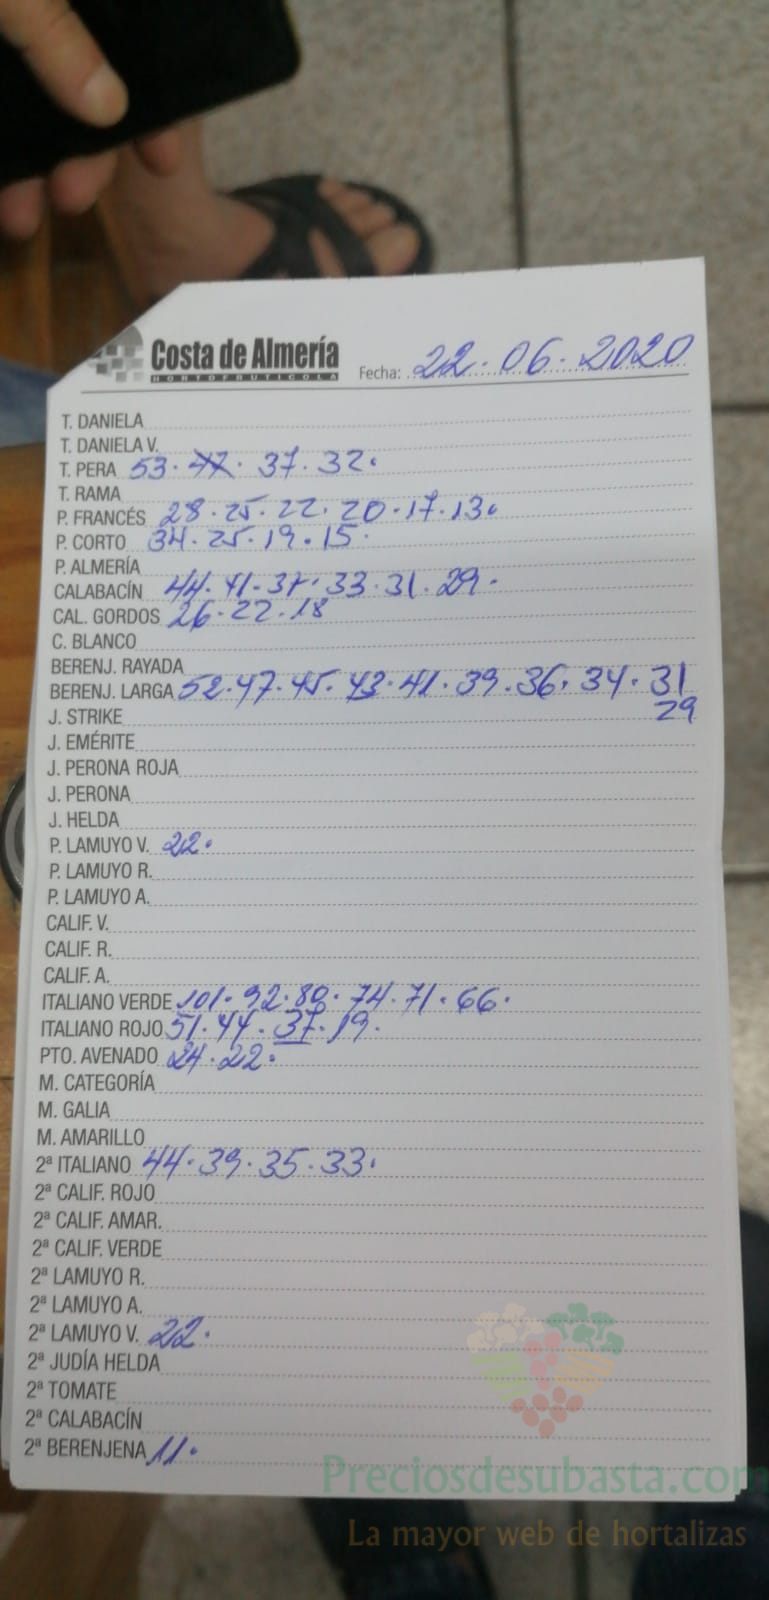 Costa de Almería
HORTOFRUTICOLA
Fecha: 22·06·2020
T. DANIELA
T. DANIELA V.
T. PERA 53·47·37·32·
T. RAMA
P. FRANCÉS 28·25·22·20·17·13·
P. CORTO 34·25·19·15·
P. ALMERÍA
CALABACÍN 44·41·37·33·31·29·
CAL. GORDOS 26·22·18
C. BLANCO
BERENJ. RAYADA
BERENJ. LARGA 52·47·45·43·41·39·36·34·31
29
J. STRIKE
J. EMÉRITE
J. PERONA ROJA
J. PERONA
J. HELDA
P. LAMUYO V. 22·
P. LAMUYO R.
P. LAMUYO A.
CALIF. V.
CALIF. R.
CALIF. A.
ITALIANO VERDE 101·92·80·74·71·66·
ITALIANO ROJO 51·44·37·19·
PTO. AVENADO 24·22·
M. CATEGORÍA
M. GALIA
M. AMARILLO
2ª ITALIANO 44·39·35·33·
2ª CALIF. ROJO
2ª CALIF. AMAR.
2ª CALIF. VERDE
2ª LAMUYO R.
2ª LAMUYO A.
2ª LAMUYO V. 22·
2ª JUDÍA HELDA
2ª TOMATE
2ª CALABACÍN
2ª BERENJENA 11·
Preciosdesubasta.com
La mayor web de hortalizas